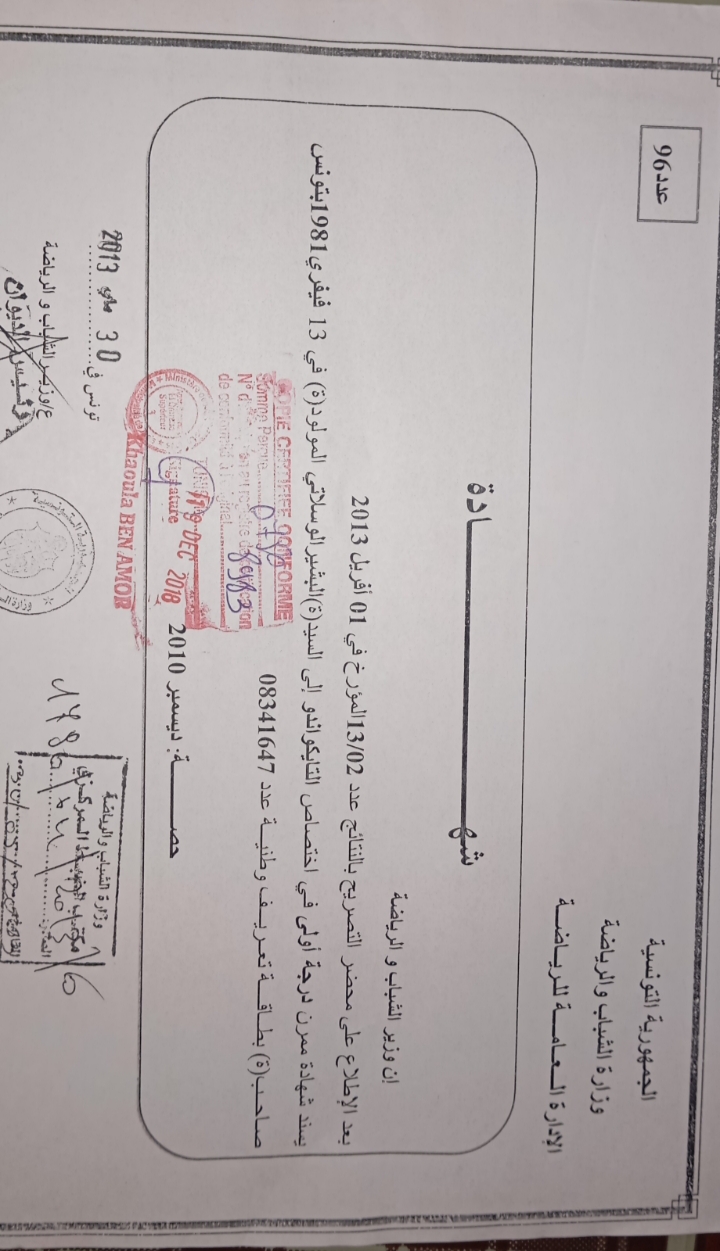 الجمهورية التونسية
وزارة الشباب والرياضة
الإدارة العامة للرياضة
عدد 96
شهادة
إن وزير الشباب و الرياضة
بعد الإطلاع على محضر التصريح بالنتائج عدد 13/02 المؤرخ في 01 أفريل 2013
يسند شهادة ممرن درجة أولى في اختصاص التايكواندو إلى السيد(ة) البشير الوسلاتي المولود(ة) في 13 فيفري 1981 بتونس
صاحب(ة) بطاقة تعريف وطنية عدد 08341647
حصة: ديسمبر 2010
COPIE CERTIFIEE CONFORME
8983
19 DEC 2018
Signature
Khaoula BEN AMOR
تونس في 30 ماي 2013
ع/وزير الشباب و الرياضة
رئيس الديوان
وزارة الشباب والرياضة
مكتب الضبط المركزي